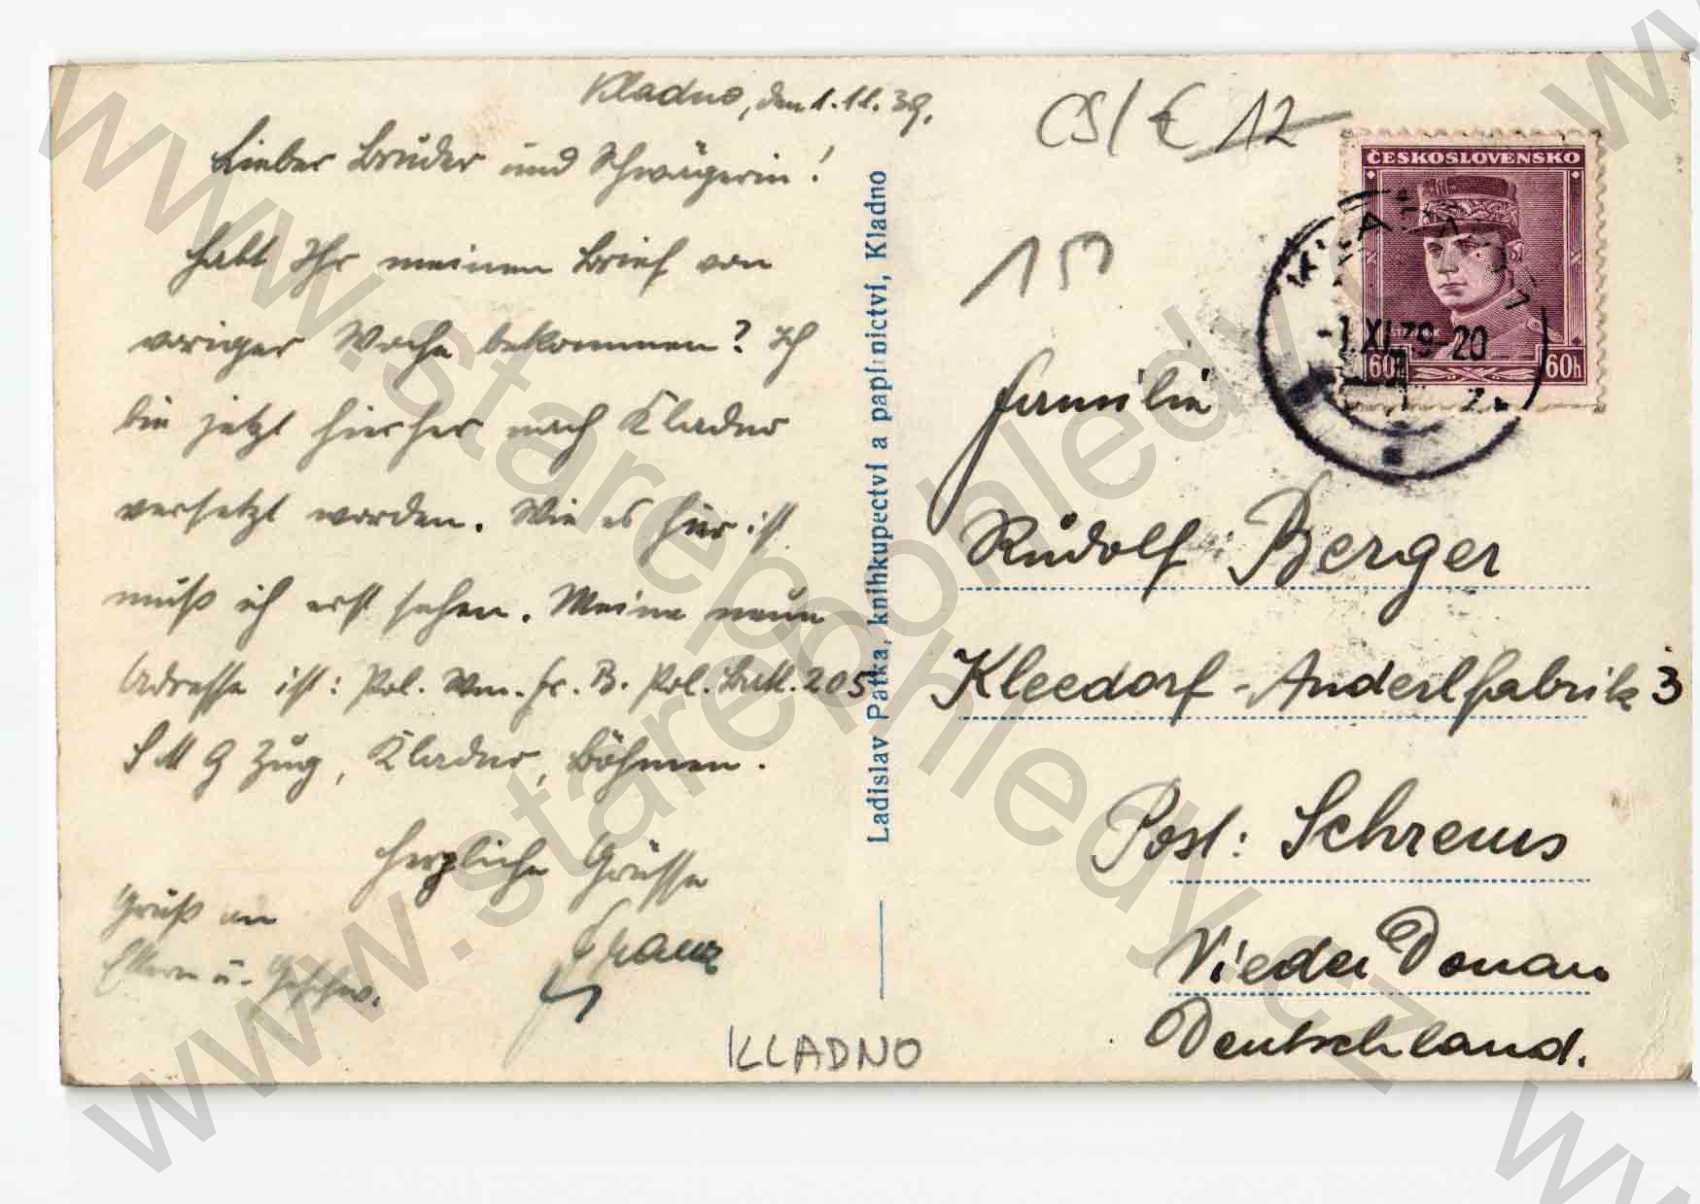 Kladno, den 1.11.39.
Lieber Bruder und Schwägerin!
Habt Ihr meinen Brief von
voriger Woche bekommen? Ich
bin jetzt hierher nach Kladno
versetzt worden. Wie es hier ist
muß ich erst sehen. Meine neue
Adresse ist: Pol. Wm. Fr. B. Pol. Batl. 205
S M G Zug, Kladno, Böhmen.
Herzliche Grüsse
Franz
Gruß an
Eltern u. Geschw.
KLADNO
Ladislav Pátka, knihkupectví a papírnictví, Kladno
CS/€ 12
150
ČESKOSLOVENSKO
60h
60h
-1.XI.39-20
Familie
Rudolf Berger
Kleedorf - Anderlfabrik 3
Post: Schrems
Nieder Donau
Deutschland.
www.starepohledy.cz
www.starepohledy.cz